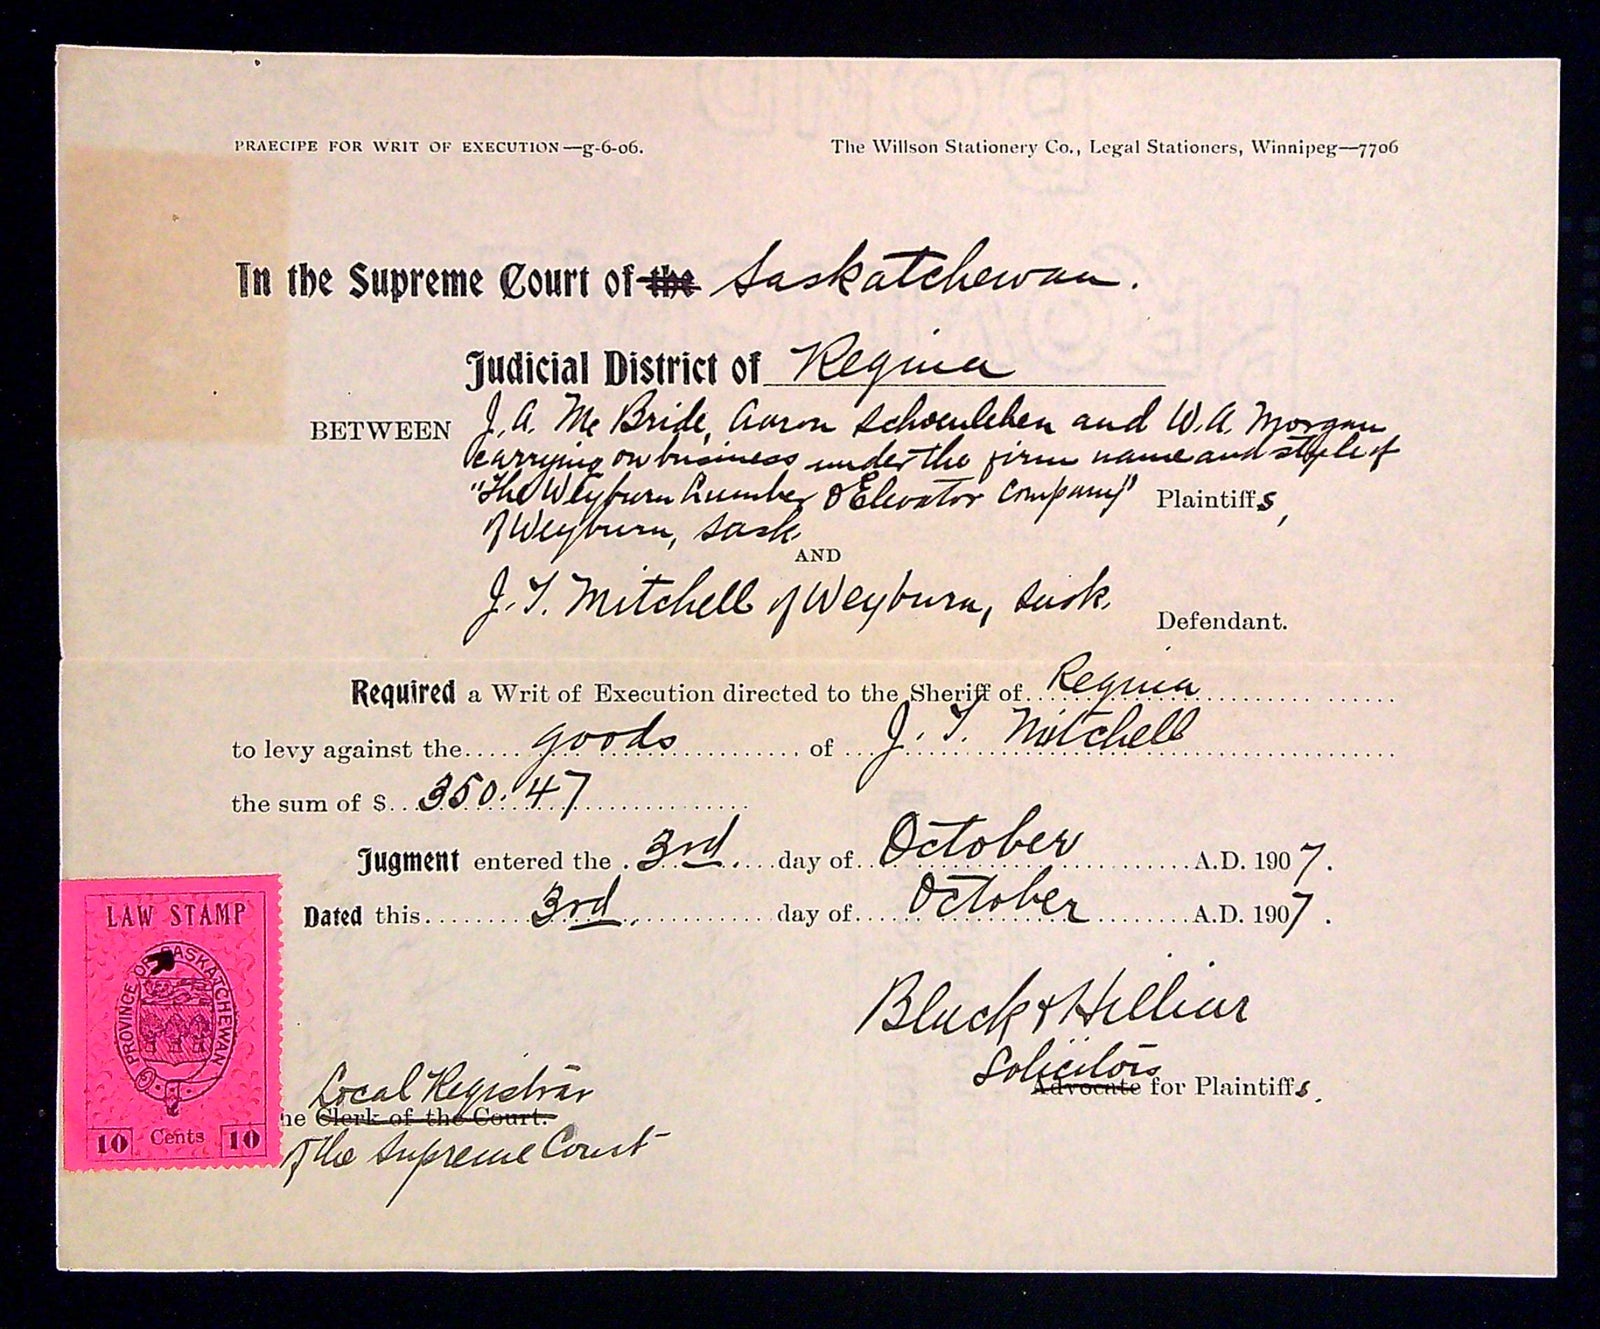 PRAECIPE FOR WRIT OF EXECUTION—g-6-06.
The Willson Stationery Co., Legal Stationers, Winnipeg—7706
In the Supreme Court of the Saskatchewan.
Judicial District of Regina
BETWEEN J. A. McBride, Aaron Schoenleben and W. A. Morgan
carrying on business under the firm name and style of
"The Weyburn Lumber & Elevator Company" Plaintiffs,
of Weyburn, Sask.
AND
J. T. Mitchell of Weyburn, Sask.
Defendant.
Required a Writ of Execution directed to the Sheriff of Regina
to levy against the goods of J. T. Mitchell
the sum of $ 350.47
Jugment entered the 3rd day of October A.D. 1907.
Dated this 3rd day of October A.D. 1907.
Black & Hilliar
Solicitors
Advocate for Plaintiffs.
Local Registrar
he Clerk of the Court.
of the Supreme Court
LAW STAMP
PROVINCE OF SASKATCHEWAN
10 Cents 10